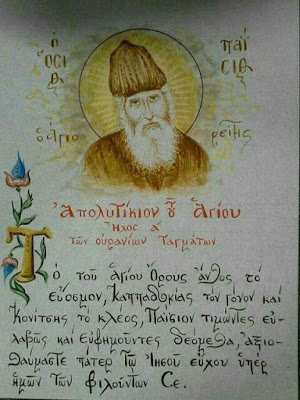 ὁ ὍΣΙΟΣ ΠΑΪΣΙΟΣ
ὁ ἉΓΙΟΡΕΙΤΗΣ
Ἀπολυτίκιον τοῦ Ἁγίου
Ἦχος α΄
τῶν οὐρανίων Ταγμάτων
Τὸ τοῦ Ἁγίου Ὄρους ἄνθος τὸ
εὔοσμον, Καππαδοκίας τὸν γόνον καὶ
Κονίτσης τὸ κλέος, Παΐσιον τιμῶντες εὐ-
λαβῶς καὶ εὐφημοῦντες δεόμεθα, ἀξιο-
θαύμαστε πάτερ Τῷ Ἰησοῦ εὔχου ὑπὲρ
ἡμῶν τῶν φιλούντων Σε.